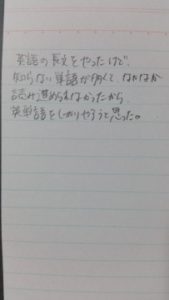 英語の長文をやったけど、
知らない単語が多くて なかなか
読み進められなかったから
英単語をしっかりやろうと思った。